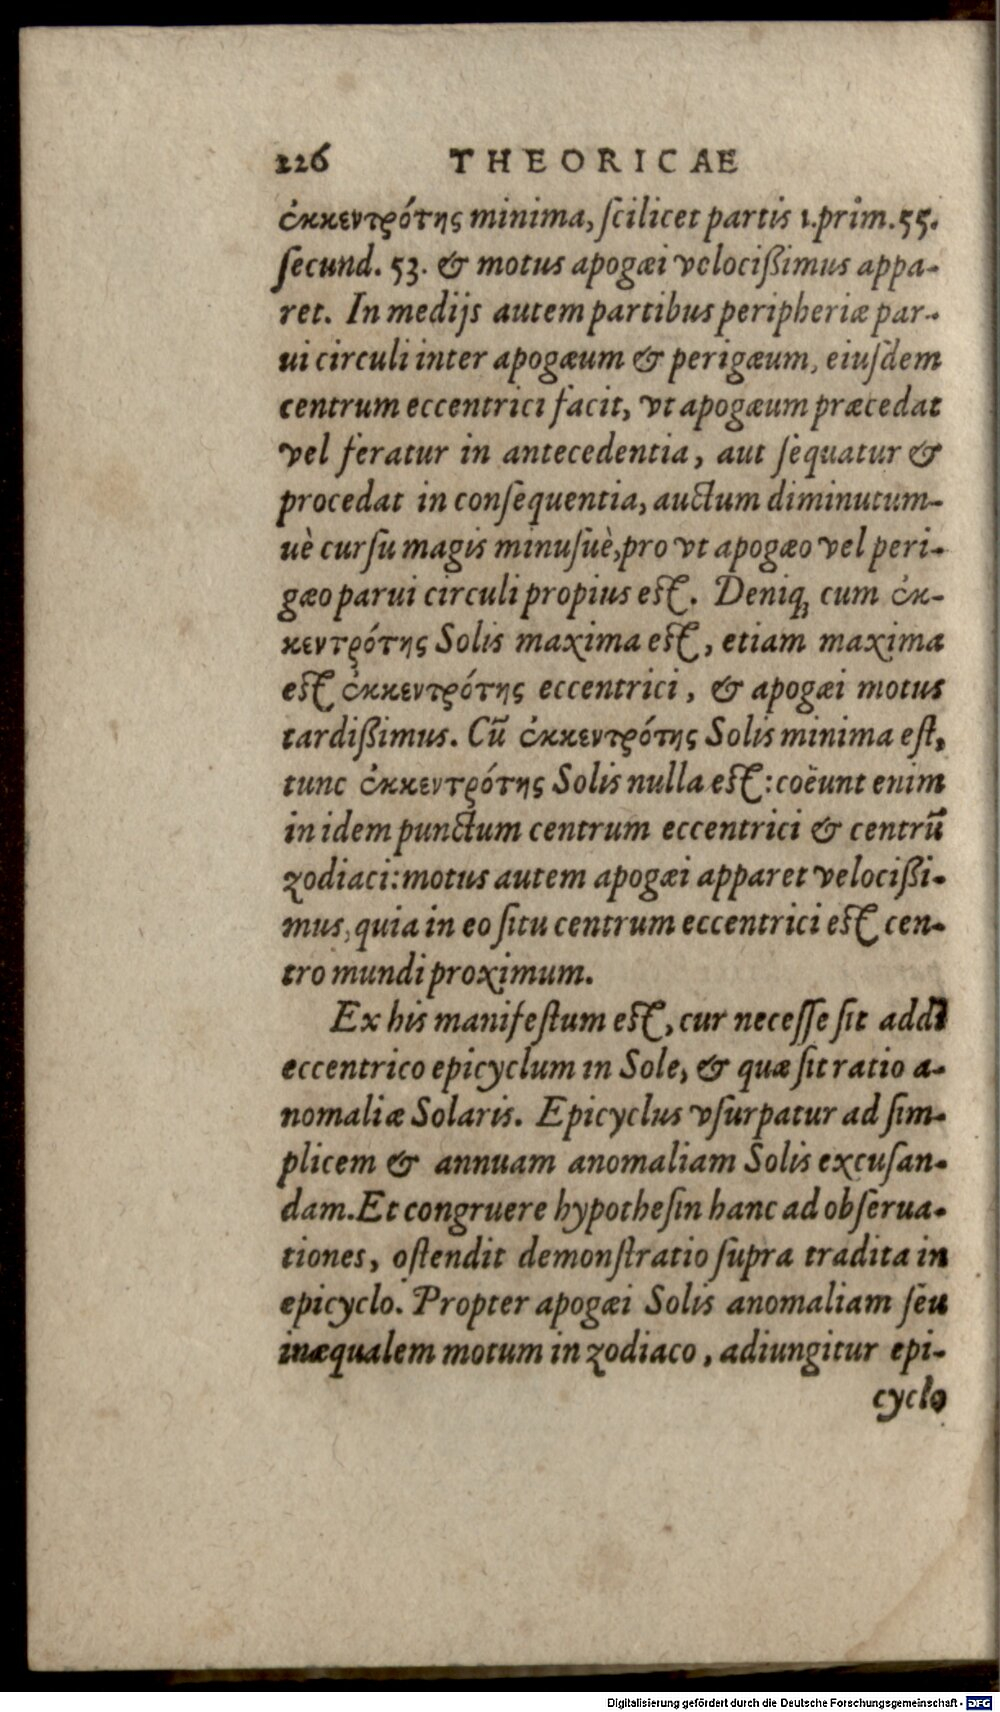 226 THEORICAE
ἐκκεντρότης minima, ſcilicet partis 1. prim. 55.
ſecund. 53. & motus apogæi velocißimus appa-
ret. In medijs autem partibus peripheriæ par-
ui circuli inter apogæum & perigæum, eiuſdem
centrum eccentrici facit, vt apogæum præcedat
vel feratur in antecedentia, aut ſequatur &
procedat in conſequentia, auctum diminutum-
uè curſu magis minuſuè, pro vt apogæo vel peri-
gæo parui circuli propius eſt. Deniq; cum ἐκ-
κεντρότης Solis maxima eſt, etiam maxima
eſt ἐκκεντρότης eccentrici, & apogæi motus
tardißimus. Cū ἐκκεντρότης Solis minima eſt,
tunc ἐκκεντρότης Solis nulla eſt: coëunt enim
in idem punctum centrum eccentrici & centrū
zodiaci: motus autem apogæi apparet velocißi-
mus, quia in eo ſitu centrum eccentrici eſt cen-
tro mundi proximum.
Ex his manifeſtum eſt, cur neceſſe ſit addi
eccentrico epicyclum in Sole, & quæ ſit ratio a-
nomaliæ Solaris. Epicyclus vſurpatur ad ſim-
plicem & annuam anomaliam Solis excuſan-
dam. Et congruere hypotheſin hanc ad obſerua-
tiones, oſtendit demonſtratio ſupra tradita in
epicyclo. Propter apogæi Solis anomaliam ſeu
inæqualem motum in zodiaco, adiungitur epi-
cyclo
Digitalisierung gefördert durch die Deutsche Forschungsgemeinschaft - DFG